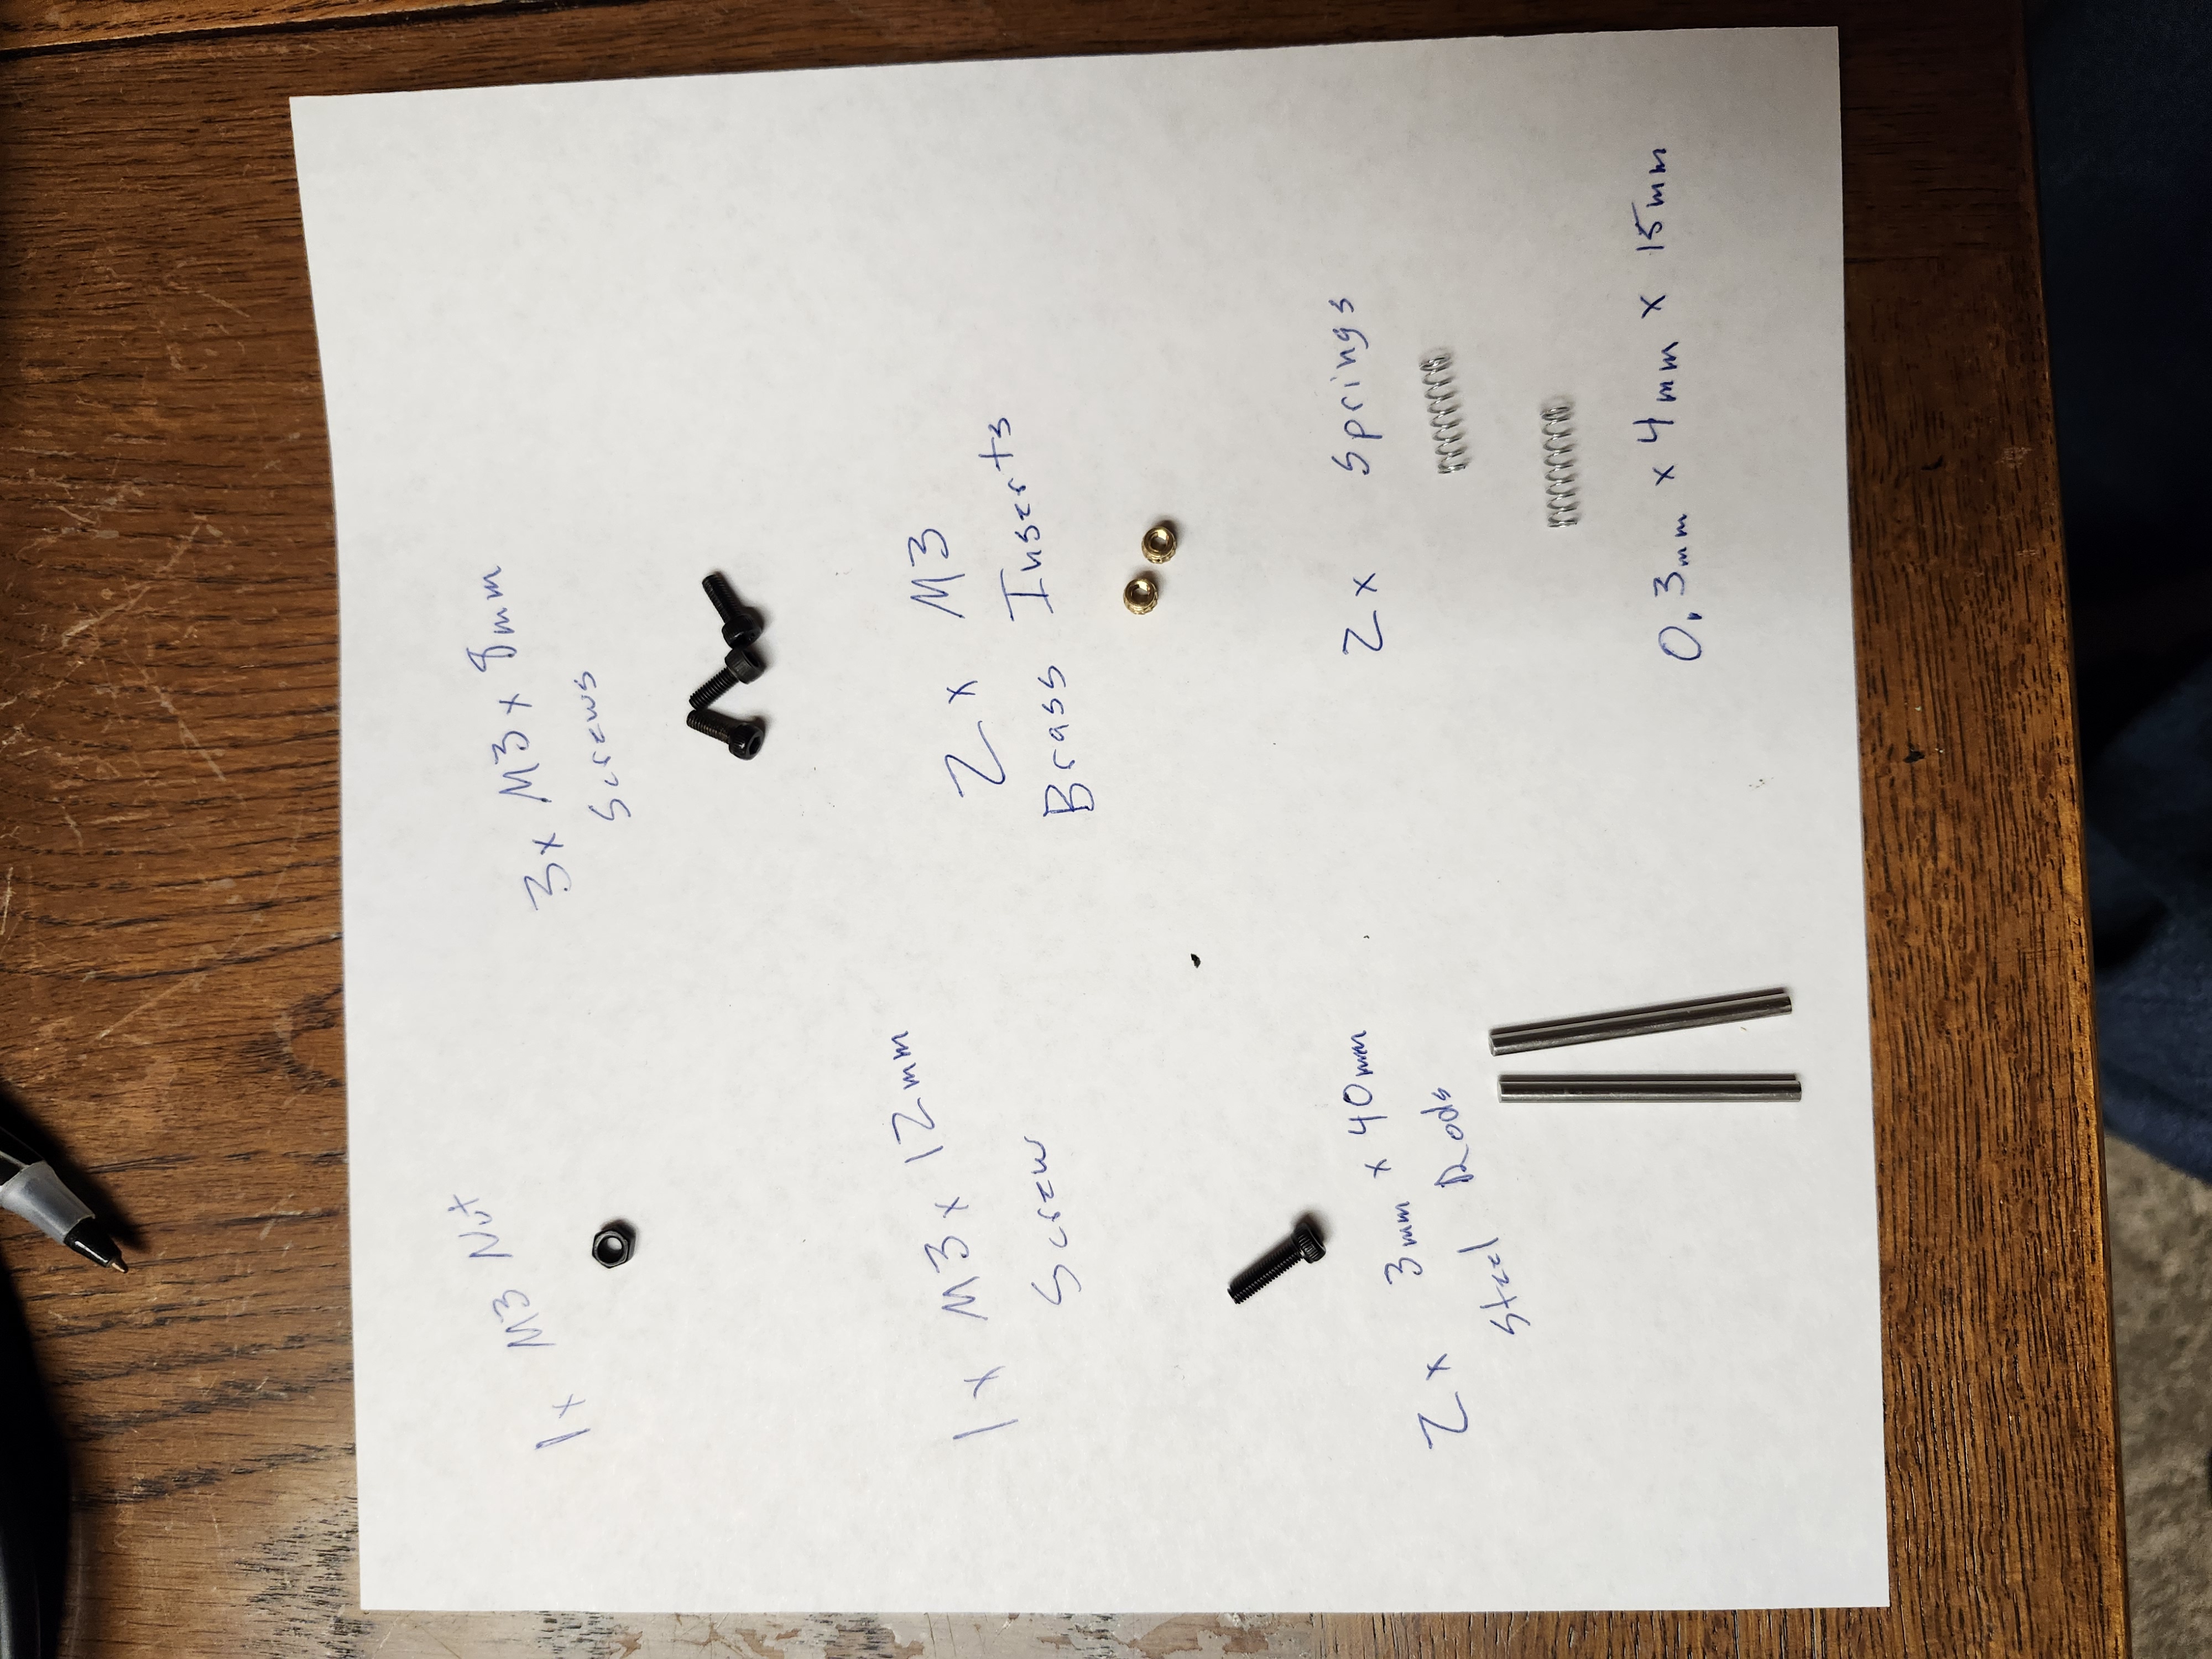 1x M3 Nut
3x M3 x 8mm
Screws
1x M3 x 12mm
Screw
2x M3
Brass Inserts
2x 3mm x 40mm
Steel Rods
2x Springs
0.3mm x 4mm x 15mm